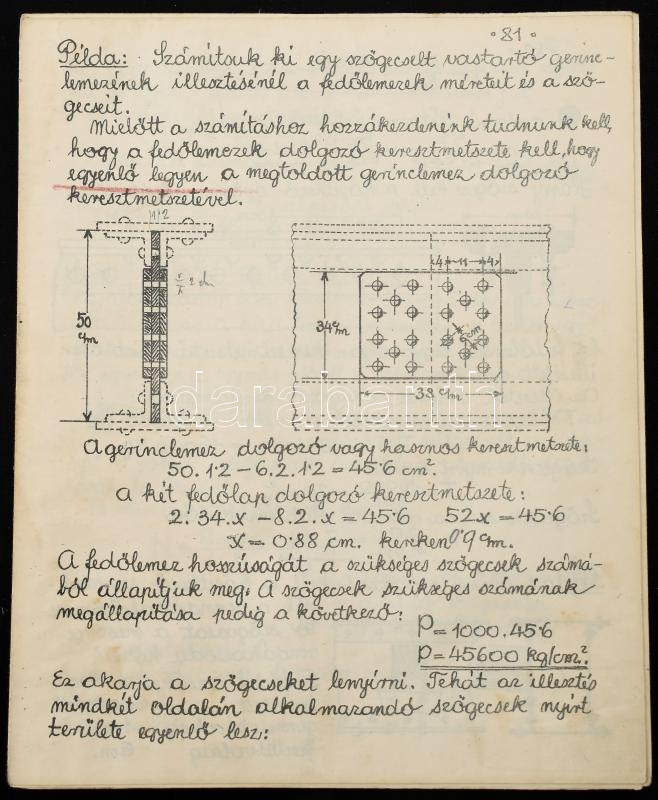 ·81·
Példa: Számítsuk ki egy szögecselt vastartó gerinc-
lemezének illesztésénél a fedőlemezek méreteit és a szö-
gecseit.
Mielőtt a számításhoz hozzákezdenénk tudnunk kell,
hogy a fedőlemezek dolgozó keresztmetszete kell, hogy
egyenlő legyen a megtoldott gerinclemez dolgozó
keresztmetszetével.
1'2
50 c/m
34 c/m
4 11 4
38 c/m
darabanth
A gerinclemez dolgozó vagy hasznos keresztmetszete:
50.1·2 – 6.2.1·2 = 45·6 cm².
a két fedőlap dolgozó keresztmetszete:
2.34.x – 8.2.x = 45·6 52x = 45·6
x = 0·88 cm. kereken 0'9 c/m.
A fedőlemez hosszúságát a szükséges szögecsek számá-
ból állapítjuk meg. A szögecsek szükséges számának
megállapítása pedig a következő:
P = 1000.45·6
P = 45600 kg/cm².
Ez akarja a szögecseket lenyírni. Tehát az illesztés
mindkét oldalán alkalmazandó szögecsek nyírt
területe egyenlő lesz: